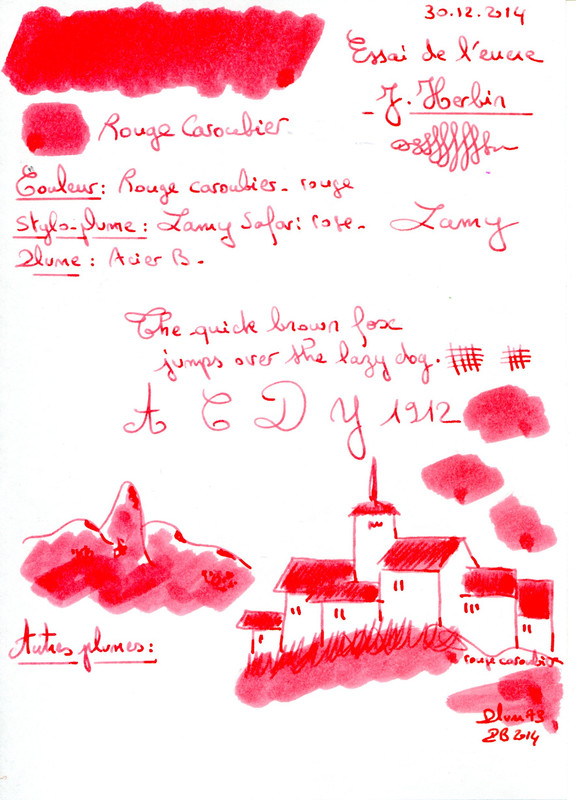 30.12.2014
Essai de l'encre
J. Herbin
Rouge Caroubier
Couleur: Rouge caroubier - rouge
Stylo-plume: Lamy Safari rose - Lamy
Plume: Acier B -
The quick brown fox
jumps over the lazy dog.
A C D Y 1912
Autres plumes:
rouge caroubier
PB 2014